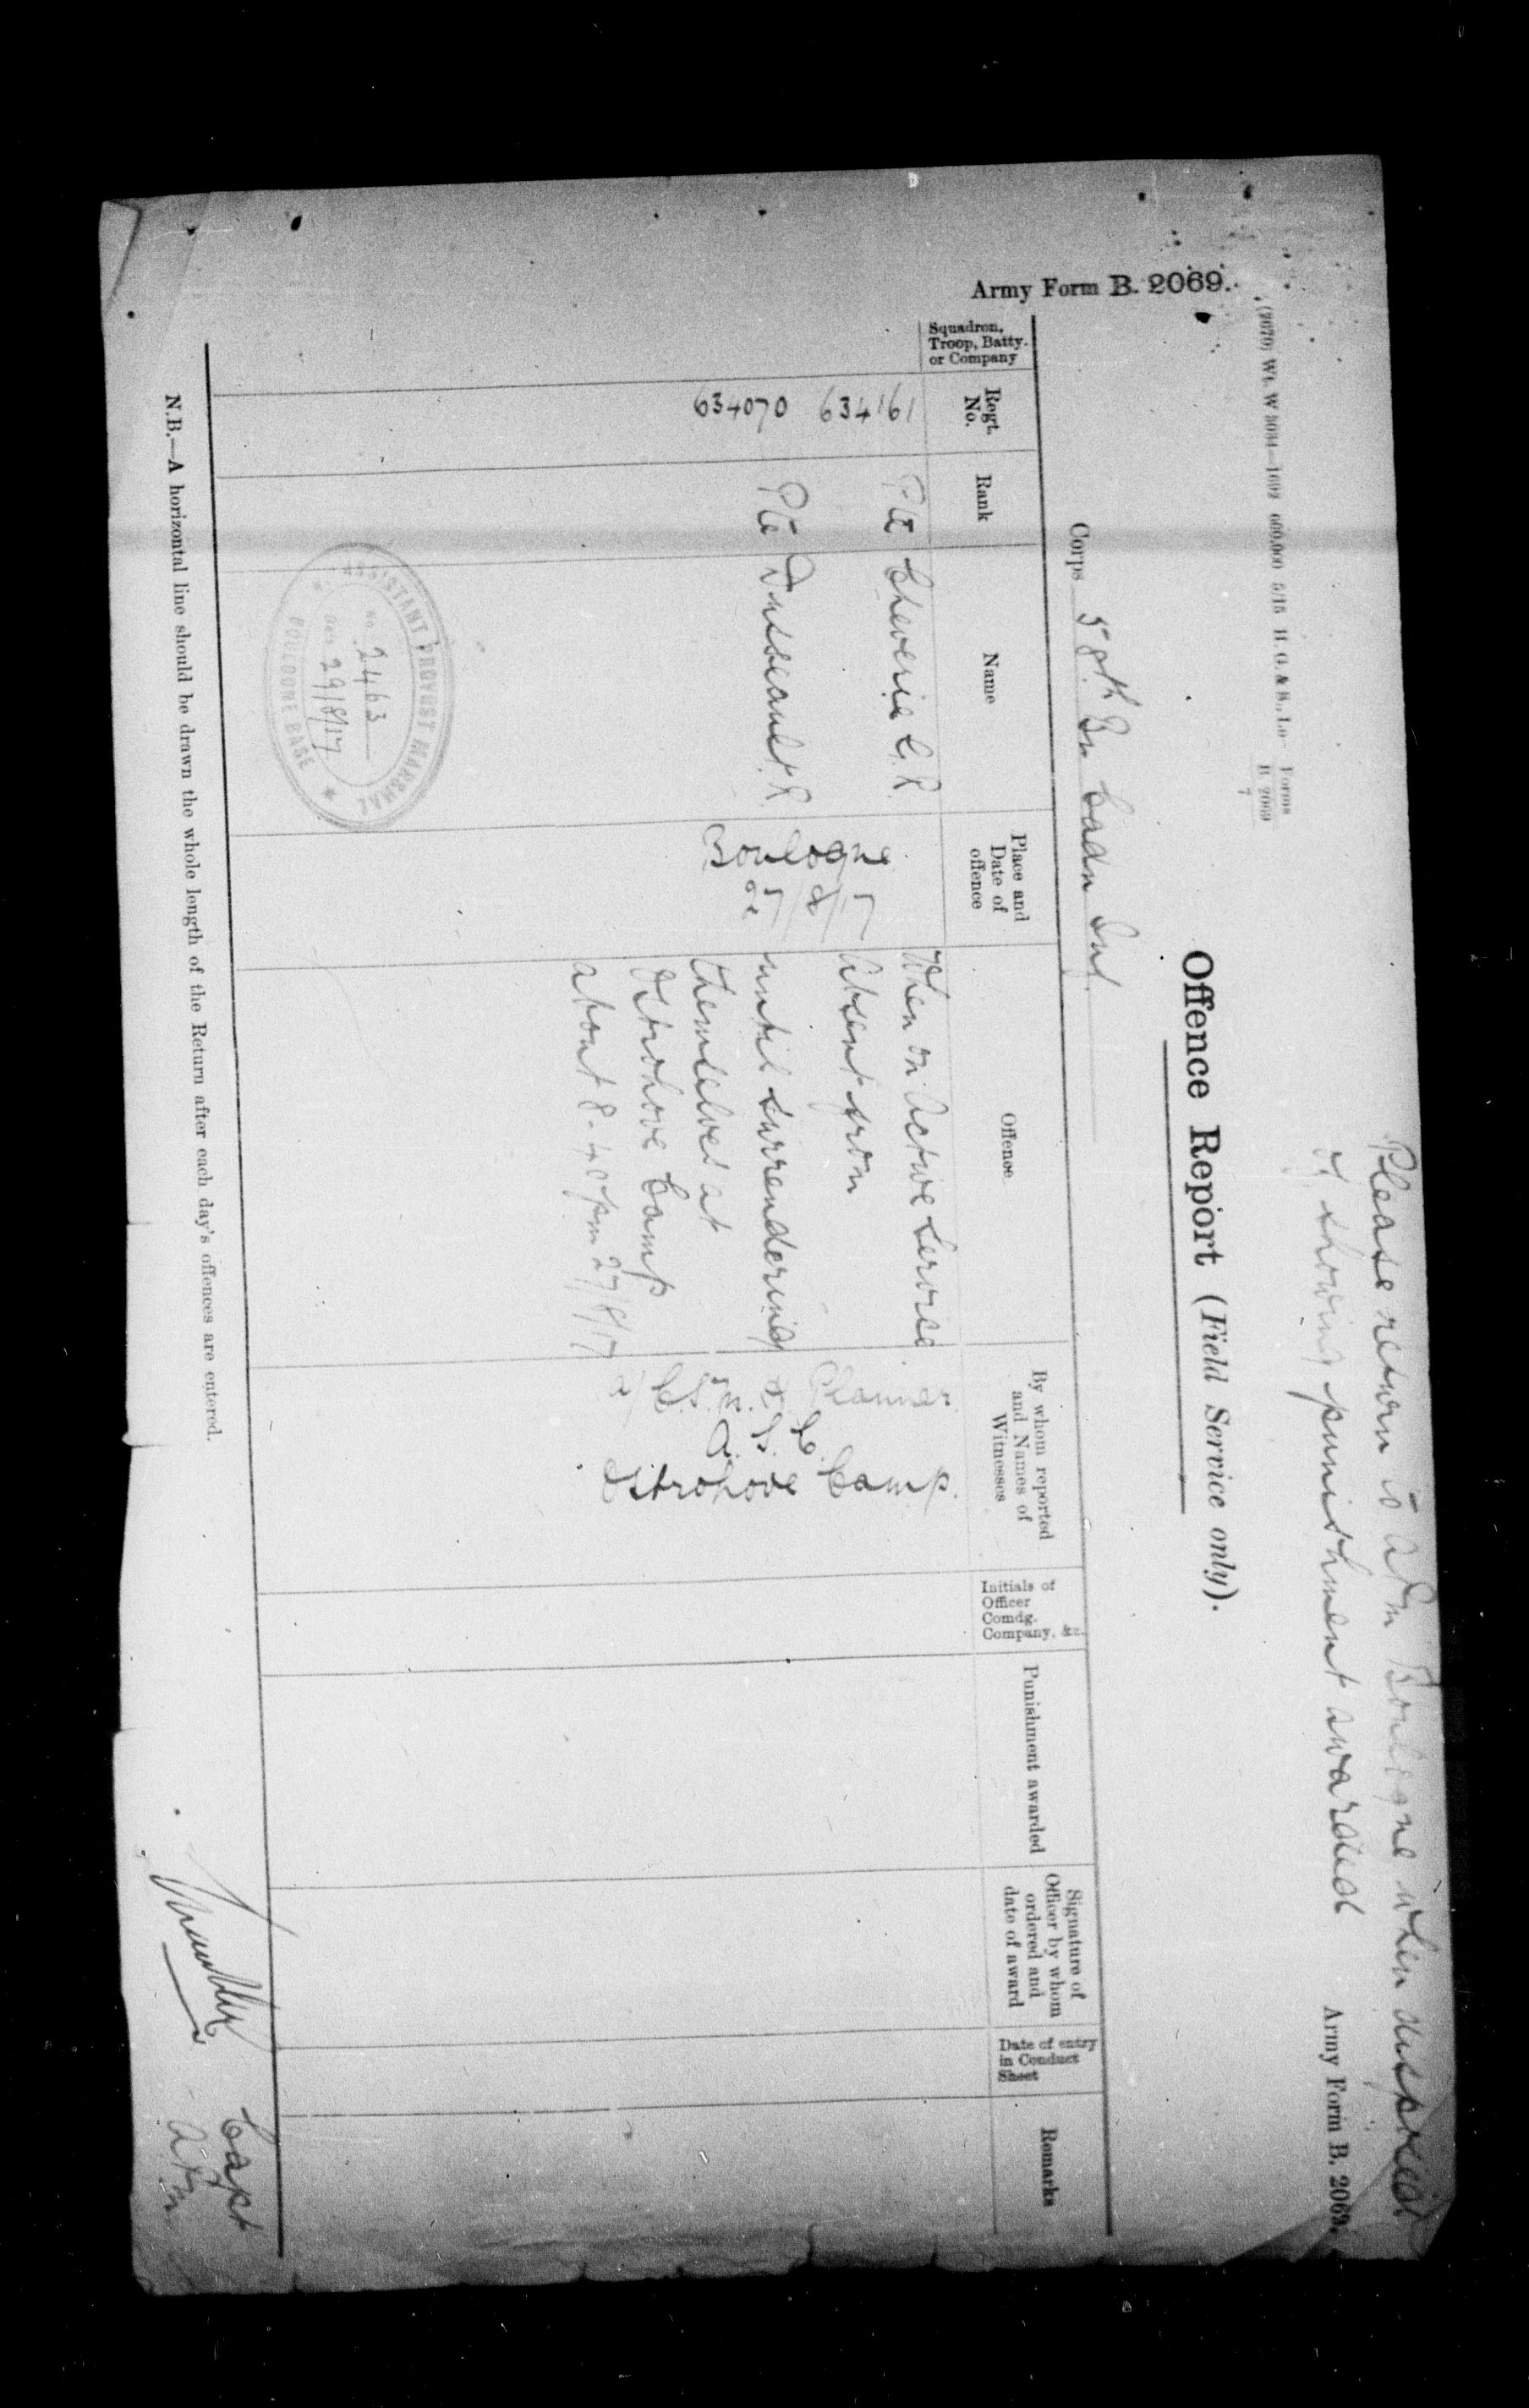 Please return to A.P.M Boulogne when disposed
of showing punishment awarded
Army Form B. 2069.
Army Form B. 2069.
Forms
B. 2069
7
Offence Report (Field Service only).
Corps 58th Bn Cadn Inf.
Squadron,
Troop, Batty.
or Company
Regt.
No.
Rank
Name
Place and
Date of
offence
Offence
By whom reported
and Names of
Witnesses
Initials of
Officer
Comdg.
Company, &c.
Punishment awarded
Signature of
Officer by whom
ordered and
date of award
Date of entry
in Conduct
Sheet
Remarks
634161
Pte Cheverie G.R.
634070
Pte Dusseault R.
Boulogne
When on Active Service
Absent from
until surrendering
themselves at
Ostrohove Camp
about 8-40 pm 27/8/17
Planner
A.S.C.
Ostrohove Camp.
ASSISTANT PROVOST MARSHAL
No. 2463
Date 29/8/17
BOULOGNE BASE
Capt
A.P.M
N.B.—A horizontal line should be drawn the whole length of the Return after each day's offences are entered.